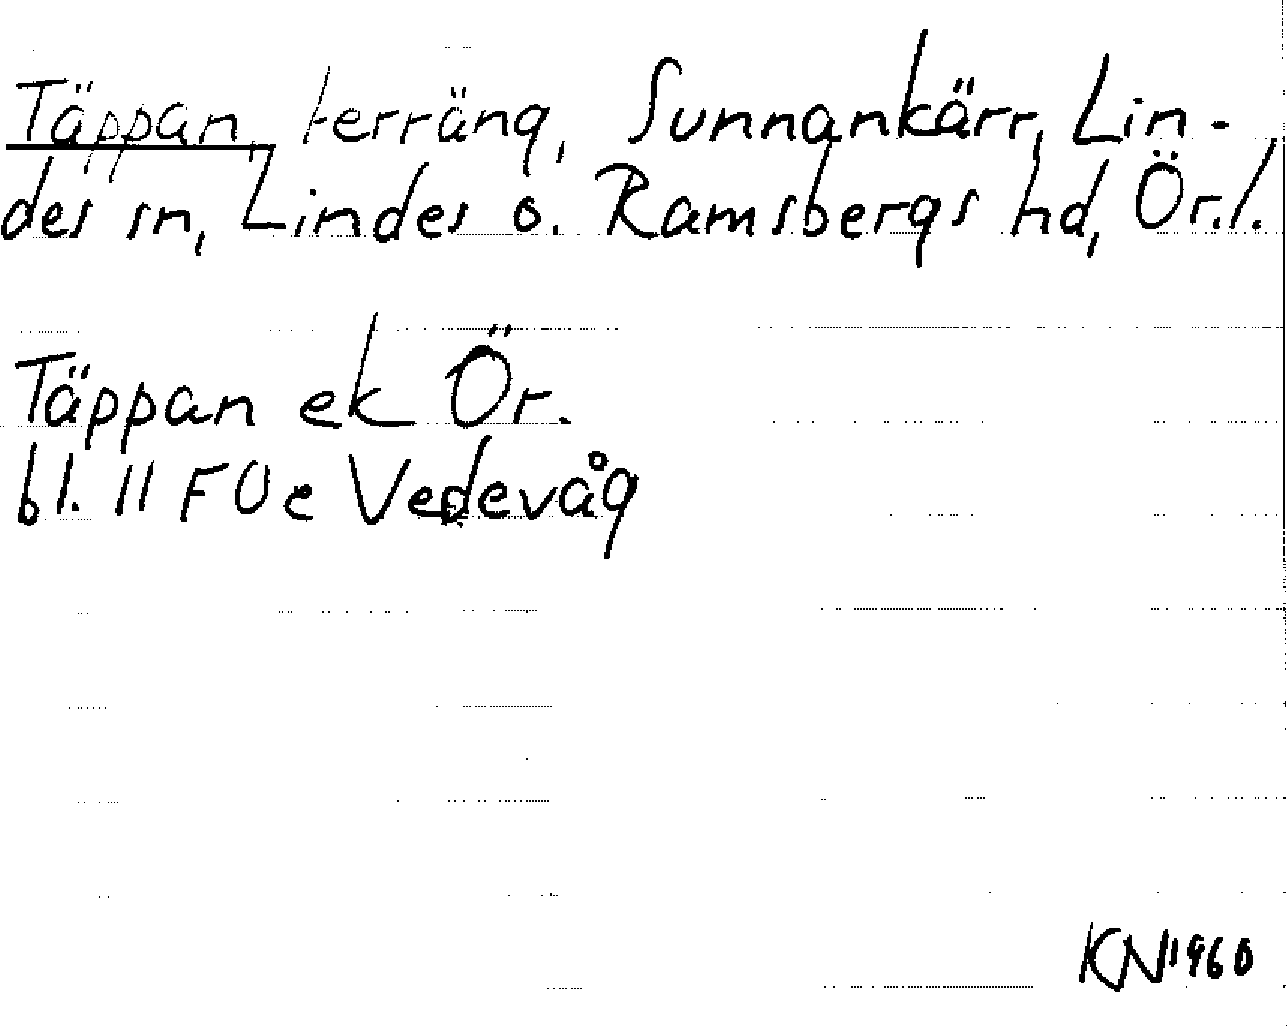 Täppan, terräng, Sunnankärr, Lin-
des sn, Lindes o. Ramsbergs hd, Ör.l.
Täppan ek Ör.
bl. 11 F 0 e Vedevåg
KN 1960